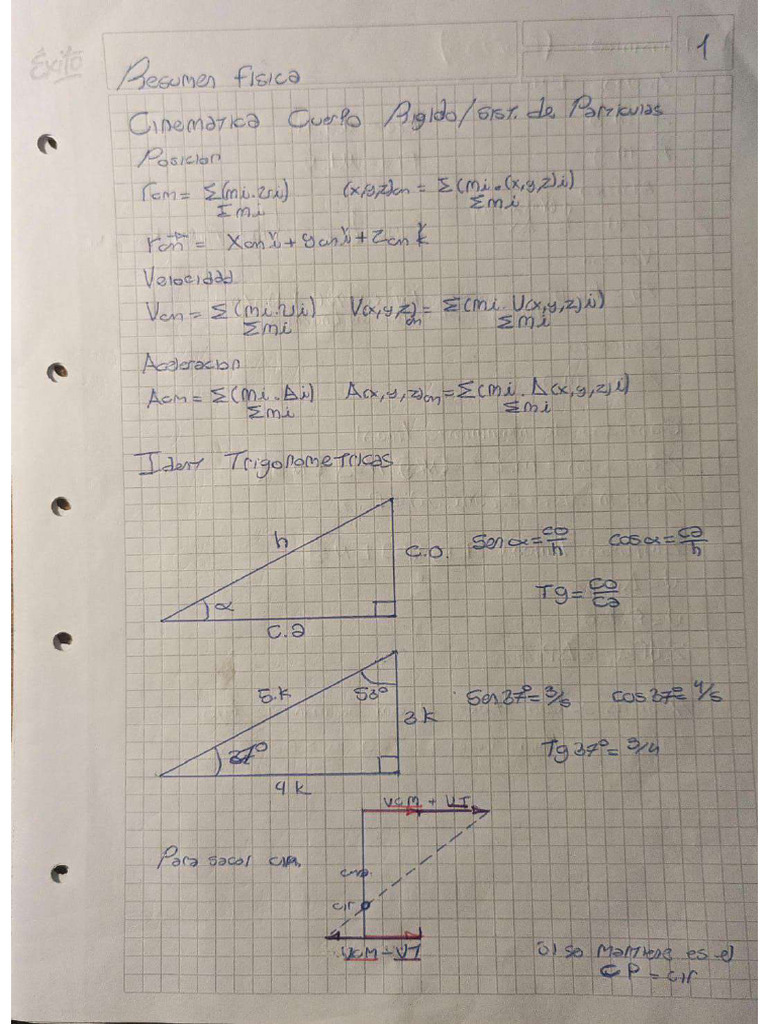 1
Éxito
Resumen física
Cinematica Cuerpo Rigido/sist. de Particulas
Posicion
rcm = Σ(mi.ri) / Σmi (x,y,z)cm = Σ(mi.(x,y,z)i) / Σmi
rcm = Xcm i + ycm j + Zcm k
Velocidad
Vcm = Σ(mi.vi) / Σmi V(x,y,z)cm = Σ(mi.V(x,y,z)i) / Σmi
Aceleracion
Acm = Σ(mi.Ai) / Σmi A(x,y,z)cm = Σ(mi.A(x,y,z)i) / Σmi
Ident Trigonometricas
h
C.O. Sen α = co/h cos α = ca/h
α
Tg = co/ca
c.a
5.k 53° Sen 37° = 3/5 cos 37° = 4/5
3k
37° Tg 37° = 3/4
4k
VCM + VT
Para sacar cir.
cm.
cir
VCM - VT
si se mantiene es el
CP = cir